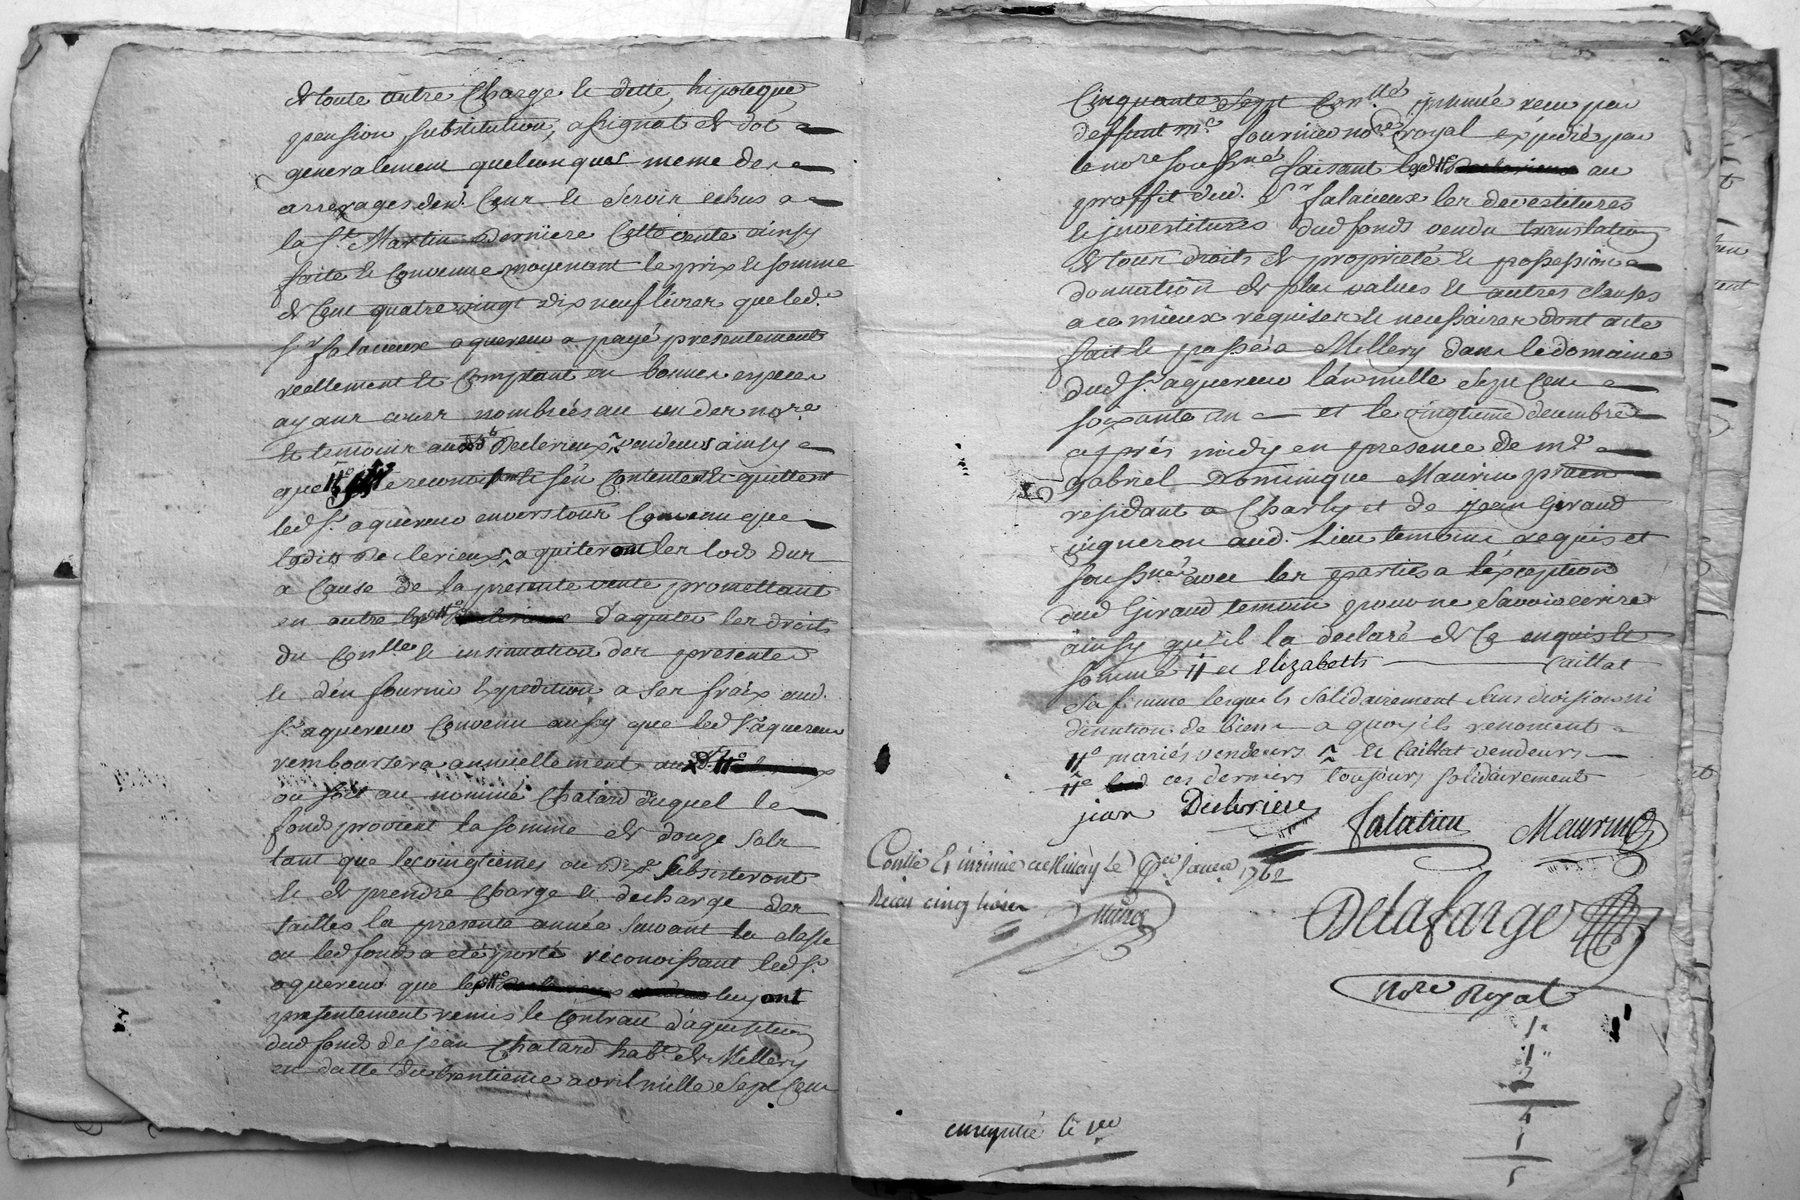 de toute autre Charge de dette, hipoteque
pension substitution, assignat de dot
generalement quelconques meme des
arrerages dud. Cens et servis echus a
la St. Martin derniere Cette vente ainsy
faite et Convenue moyenant le prix et somme
de Cent quatre vingt dix neuf livres que led.
sr. falacieux aquereur a payé presentement
reellement et Comptant en bonnes especes
ayant cours nombrées au vu des nore
et temoins Declerieux vendeurs ainsy
que reconnoissent s'en Contentent et quittent
led sr. aquereur envers tous Convenu que
Declerieux aquiteront les lods dus
a Cause de la presente vente promettant
en outre d'aquiter les droits
du Conlle et insinuation des presentes
et d'en fournir Expedition a ses fraix aud.
sr. aquereur Convenu aussy que led sr. aquereur
remboursera annuellement
ou soit au nommé Chatard duquel le
fonds provient la somme de douze sols
tant que les vingtiemes ou Dix. subsisteront
et de prendre Charge et decharge des
tailles la presente année suivant la classe
ou led fonds a eté porté reconoissant led sr.
aquereur que luy ont
presentement remis le Contrat d'aquisition
dud fonds de jean Chatard habt. de Millery
en datte du trentieme avril mille Sept Cent
Cinquante Sept Conllé insinué recu par
deffunt me. fournier nore royal expedié par
le nore soussné faisant au
proffit dud. Sr. falacieux les devestitures
et investitures dud fonds vendu translation
de tous droits de proprieté et possession
donnation de plus values et autres clauses
a ce mieux requises et necessaires dont acte
fait et passé a Millery dans le domaine
dud sr. aquereur l'an mille Sept Cent
soixante un et le vingtieme decembre
aprés midy en presence de me.
gabriel Dominique Maurin praen
residant a Charly et de jean Giraud
vigneron aud. lieu temoins requis et
soussné avec les parties a l'exception
dud Giraud temoin pour ne Savoir ecrire
ainsy qu'il l'a declaré de Ce enquis et
sommé # et Elizabeth Caillat
sa femme lesquels solidairement sans division ni
discution de biens a quoy ils renoncent
#o mariés vendeurs et Caillat vendeurs
#e ces derniers toujours solidairement
jean Declerieux falatieu Meaurin
Conllé et insinué a le 1er. janvier 1762
Recu cinq livres
Delafarge
nore Royal
1
1
2
4
1
5
enregistré le 1er